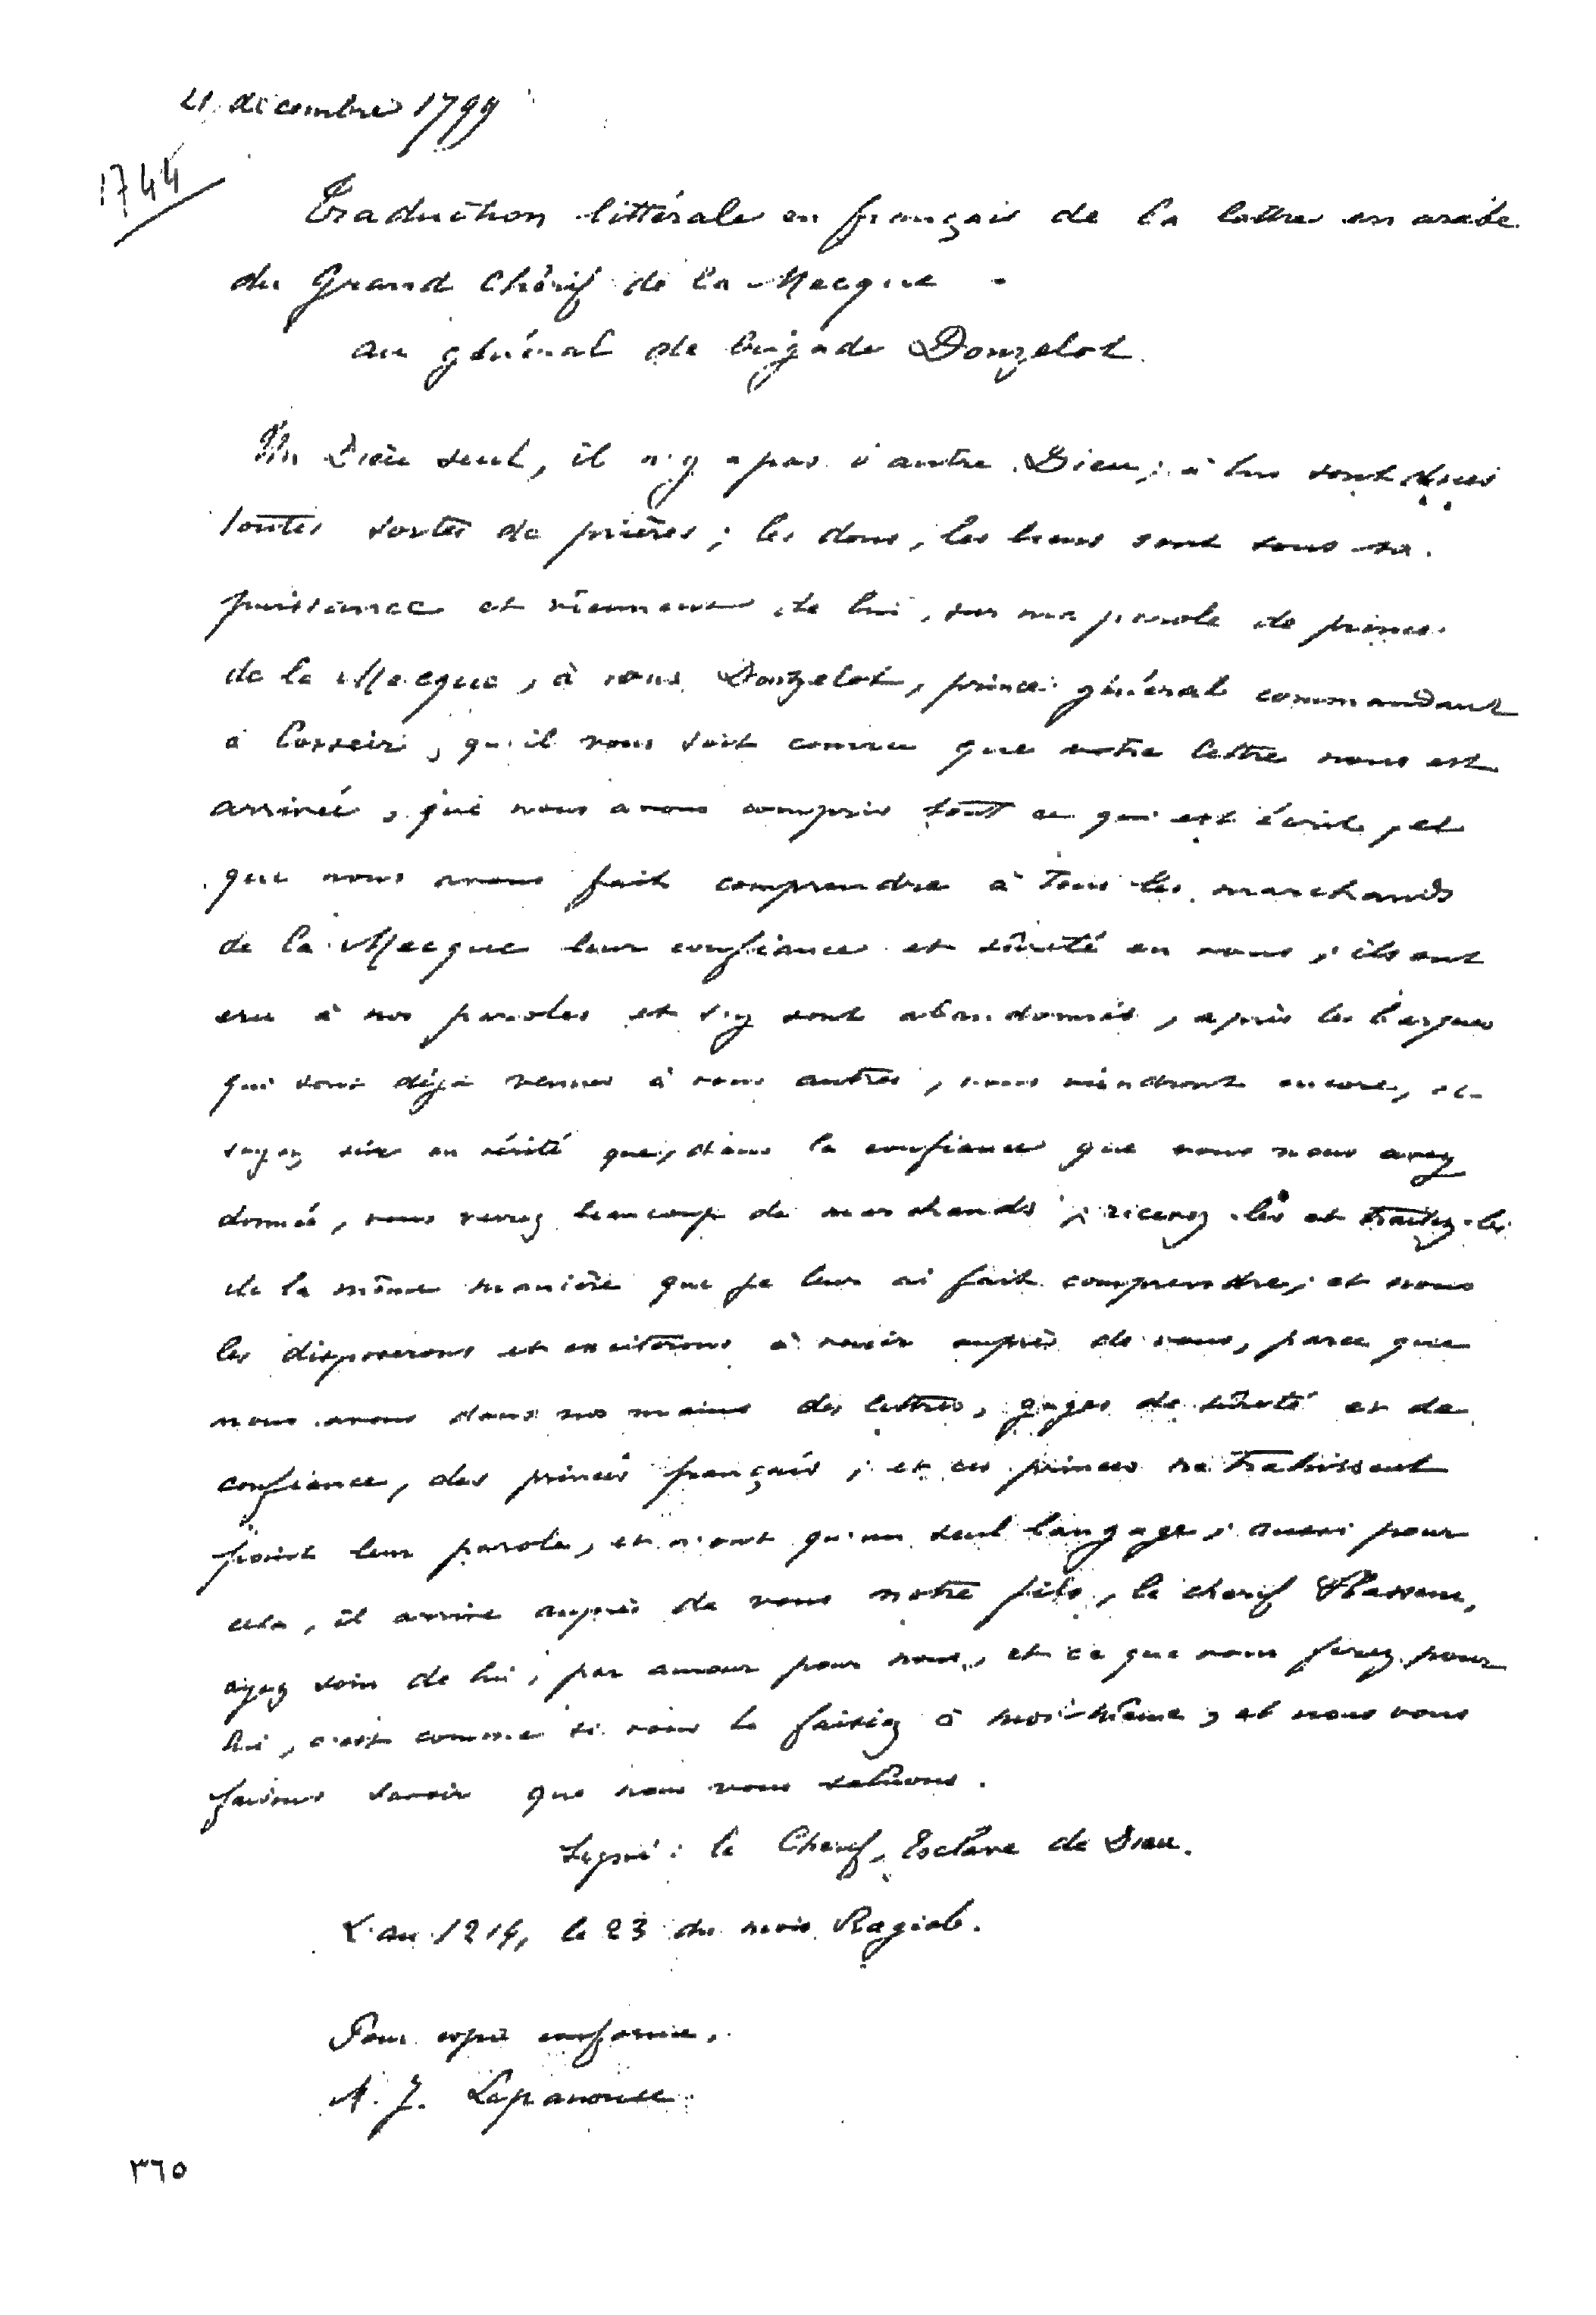 21 décembre 1799
1744
Traduction littérale en français de la lettre en arabe
du Grand Chérif de la Mecque
au général de brigade Donzelot.
Un Dieu seul, il n'y a pas d'autre Dieu ; à lui sont dues
toutes sortes de prières ; les dons, les biens sont sous sa
puissance et viennent de lui, sur ma parole de prince
de la Mecque, à vous Donzelot, prince général commandant
à Cosseir, qu'il vous soit connu que votre lettre nous est
arrivée, que nous avons compris tout ce qui est écrit, et
que nous avons fait comprendre à tous les marchands
de la Mecque leur confiance et sûreté en vous ; ils ont
cru à nos paroles et s'y sont abandonnés, après les barques
qui sont déjà venues à vous autres, vous viendront encore, et
soyez sûr en vérité que, dans la confiance que vous nous avez
donnée, vous verrez beaucoup de marchands ; recevez-les et traitez-les
de la même manière que je leur ai fait comprendre, et nous
les disposerons et exciterons à venir auprès de vous, parce que
nous avons dans nos mains des lettres, gages de sûreté et de
confiance, des princes français ; et ces princes ne trahissent
point leur parole, et n'ont qu'un seul langage ; aussi pour
cela, il arrive auprès de vous notre fils, le cherif Hassan,
ayez soin de lui, par amour pour nous, et ce que vous ferez pour
lui, c'est comme si vous le faisiez à moi-même, et nous vous
faisons savoir que nous vous saluons.
Signé : le Cherif, Esclave de Dieu.
L'an 1214, le 23 du mois Ragiab.
Pour copie conforme,
A. J. Lapanouse
٣٦٥